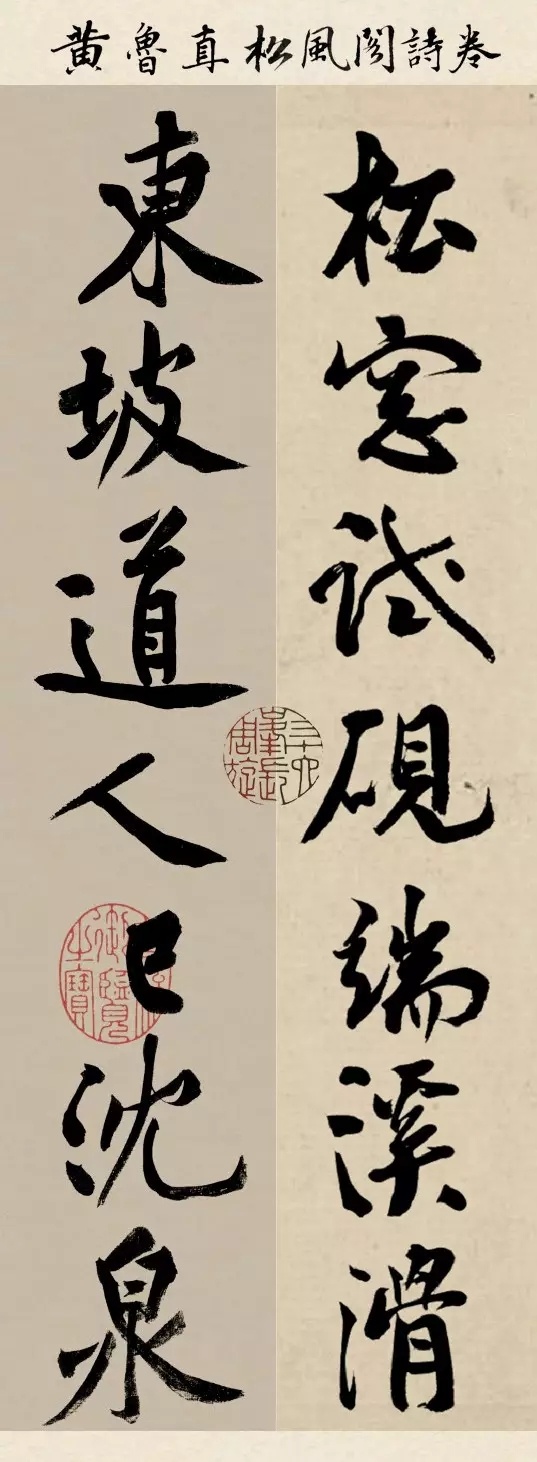 黄魯直松風閣詩卷
松窓試硯端溪滑
東坡道人已沈泉